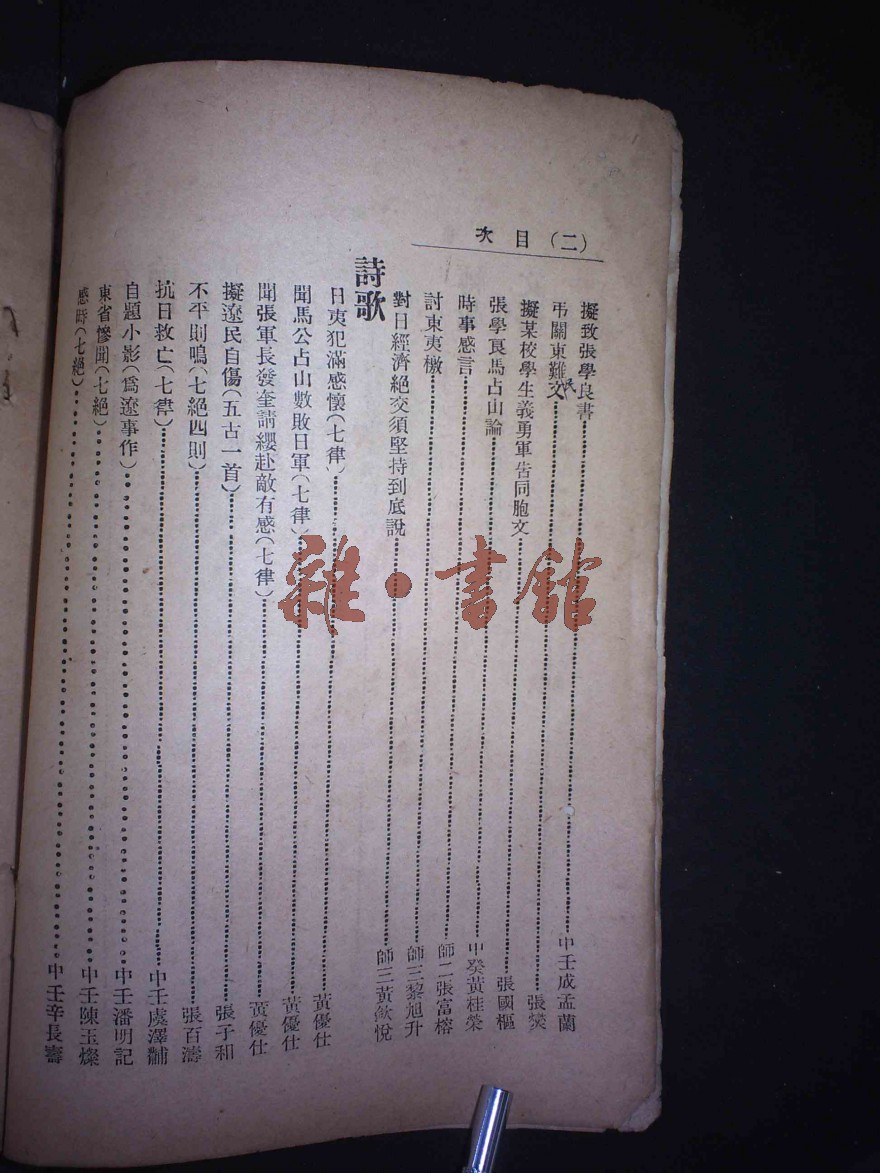 (二)目次
擬致張學良書……中壬成孟蘭
弔關東難民文……張爕
擬某校學生義勇軍告同胞文……張國樞
張學良馬占山論……中癸黃桂榮
時事感言……師二張富榕
討東夷檄……師三黎旭升
對日經濟絕交須堅持到底說……師三黃歛悅
詩歌
日夷犯滿感懷(七律)……黃優仕
聞馬公占山數敗日軍(七律)……黃優仕
聞張軍長發奎請纓赴敵有感(七律)……黃優仕
擬遼民自傷(五古一首)……張子和
不平則鳴(七絕四則)……張百濤
抗日救亡(七律)……中壬虞澤黼
自題小影(爲遼事作)……中壬潘明記
東省慘聞(七絕)……中壬陳玉燦
感時(七絕)……中壬辛長壽
雜·書館